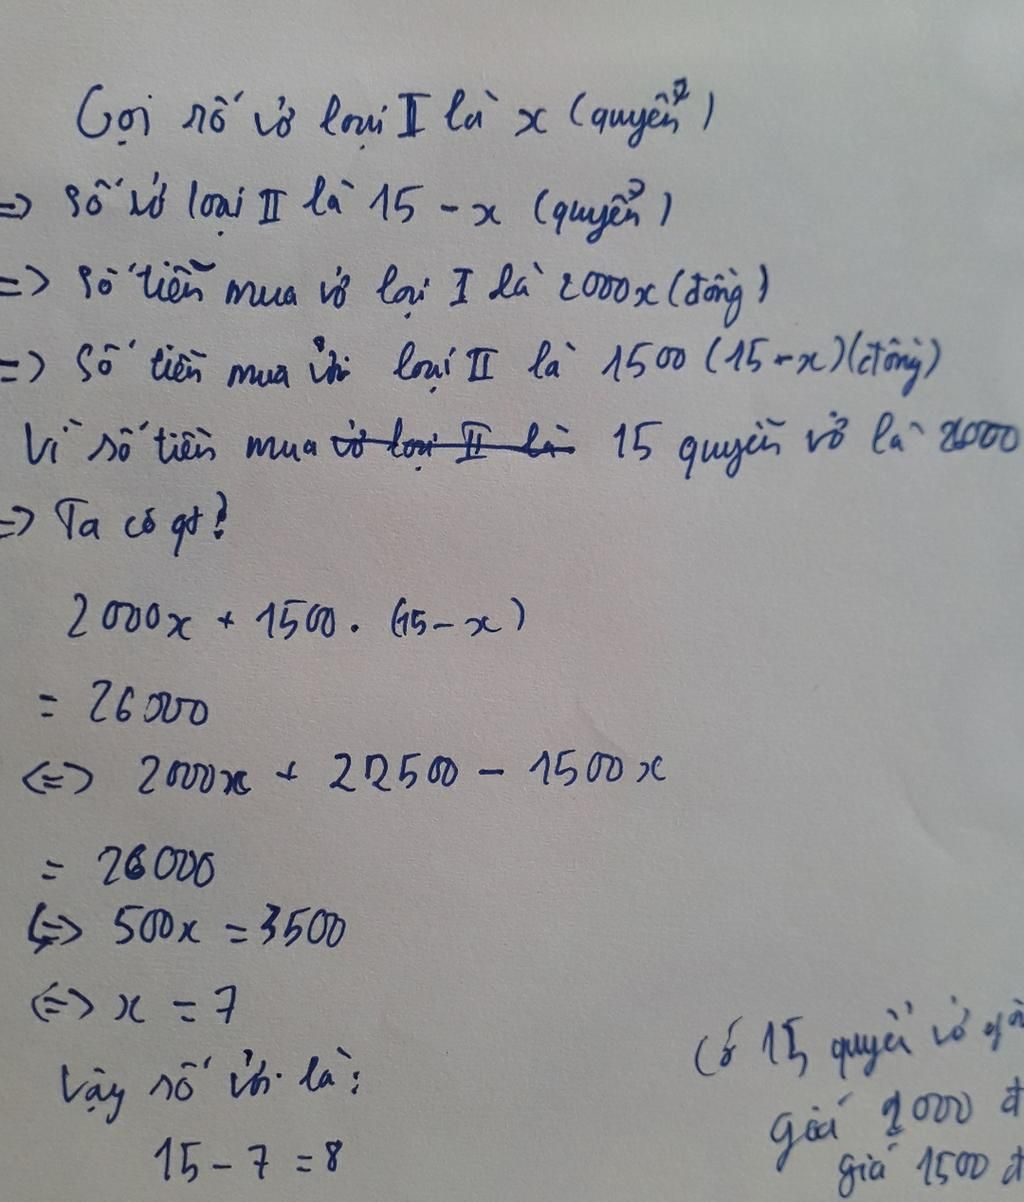 Gọi số vở loại I là x (quyển)
=> Số vở loại II là 15 - x (quyển)
=> Số tiền mua vở loại I là 2000x (đồng)
=> Số tiền mua vở loại II là 1500 (15 - x) (đồng)
Vì số tiền mua vở loại II là 15 quyển vở là
=> Ta có pt:
2000x + 1500. (15 - x)
= 26000
<=> 2000x + 22500 - 1500x
= 26000
<=> 500x = 3500
<=> x = 7
Vậy số vở là:
15 - 7 = 8
Có 15 quyển vở
giá 2000 đ
giá 1500 đ